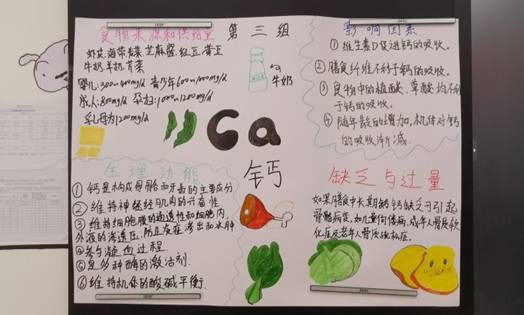 食物来源和供给量
虾皮海带绿芝麻酱、红豆、黄豆
牛奶羊奶青菜
婴儿:300~400mg/d 青少年600~1000mg/d
成人:800mg/d 孕妇:1000~1200mg/d
乳母为1200mg/d
第三组
牛奶
Ca
钙
影响因素
①维生素D促进钙的吸收。
②膳食纤维不利于钙的吸收。
③食物中的植酸、草酸均不利
于钙的吸收。
④随年龄的增加,机体对钙
的吸收渐减.
生理功能
①钙是构成骨骼和牙齿的主要成分
②维持神经肌肉的兴奋性
③维持细胞膜的通透性和细胞内
外液的渗透压,防止炎症渗出和水肿
④参与凝血过程
⑤是多种酶的激活剂.
⑥维持机体的酸碱平衡.
缺乏与过量
如果膳食中长期缺钙,可引起
骨骼病变,如儿童佝偻病,成年人骨质软
化症及老年人骨质疏松症。